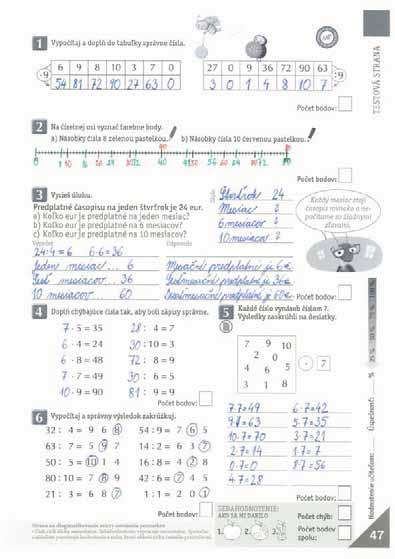 1 Vypočítaj a doplň do tabuľky správne čísla.
6 9 8 10 3 7 0
54 81 72 90 27 63 0
27 0 9 36 72 90 63
3 0 1 4 8 10 7
Počet bodov:
TESTOVÁ STRANA
2 Na číselnej osi vyznač farebne body.
a) Násobky čísla 8 zelenou pastelkou. b) Násobky čísla 10 červenou pastelkou.
Počet bodov:
3 Vyrieš úlohu.
Predplatné časopisu na jeden štvrťrok je 24 eur.
a) Koľko eur je predplatné na jeden mesiac?
b) Koľko eur je predplatné na 6 mesiacov?
c) Koľko eur je predplatné na 10 mesiacov?
Štvrťrok 24
Mesiac
6 mesiacov
10 mesiacov
Každý mesiac stojí časopis rovnako a nepočítame so žiadnymi zľavami.
Výpočet Odpoveď
24:4=6 6·6=36
Jeden mesiac... 6 Mesačné predplatné je 6€
Šesť mesiacov... 36 Šesťmesačné predplatné je 36€
10 mesiacov 60 predplatné je 60€
Počet bodov:
4 Doplň chýbajúce čísla tak, aby boli zápisy správne.
7·5=35 28:4=7
6·4=24 30:10=3
6·8=48 72:8=9
7·7=49 30:6=5
10·9=90 81:9=9
Počet bodov:
5 Každé číslo vynásob číslom 7. Výsledky zaškrtni na desiatky.
7 9 10
2 0 5
4 6
3 1 8
· 7
Počet bodov:
7·7=49 6·7=42
9·7=63 5·7=35
10·7=70 3·7=21
2·7=14 1·7=7
0·7=0 8·7=56
4·7=28
6 Vypočítaj a správny výsledok zakrúžkuj.
32:4= 9 6 8 54:9= 7 6 5
63:7= 5 9 7 14:2= 6 3 7
50:5= 10 1 4 16:8= 4 2 8
80:10= 7 8 9 42:6= 5 6 7
21:3= 6 8 7 1:1= 2 0 1
SEBAHODNOTENIE:
AKO SA MI DARILO
1. 2. 3.
Počet chýb:
Počet bodov spolu:
Hodnotenie učiteľom:
Úspešnosť: %
47